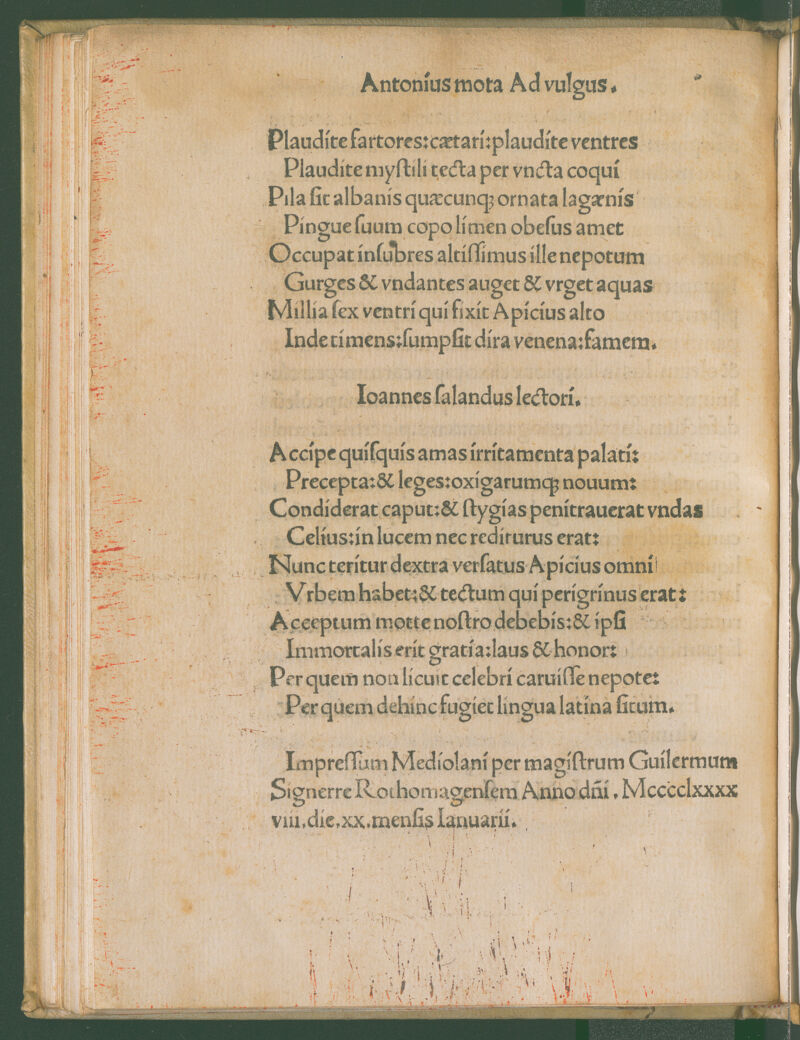 Antonius mota Ad vulgus.
Plaudite fartores:cætari:plaudite ventres
Plaudite myſtili tecta per vncta coqui
Pila ſit albanis quæcunqꝫ ornata lagænis
Pingue ſuum copo limen obeſus amet
Occupat inſubres altiſſimus ille nepotum
Gurges & vndantes auget & vrget aquas
Millia ſex ventri qui fixit Apicius alto
Inde timens:ſumpſit dira venena:famem.
Ioannes ſalandus lectori.
Accipe quiſquis amas irritamenta palati:
Precepta:& leges:oxigarumqꝫ nouum:
Condiderat caput:& ſtygias penitrauerat vndas
Celius:in lucem nec rediturus erat:
Nunc teritur dextra verſatus Apicius omni
Vrbem habet:& tectum qui perigrinus erat:
Acceptum motte noſtro debebis:& ipſi
Immortalis erit gratia:laus & honor:
Per quem non licuit celebri caruiſſe nepote:
Per quem dehinc fugiet lingua latina ſitum.
Impreſſum Mediolani per magiſtrum Guilermum
Signerre Rothomagenſem Anno dñi. Mcccclxxxx
viii.die.xx.menſis Ianuarii.